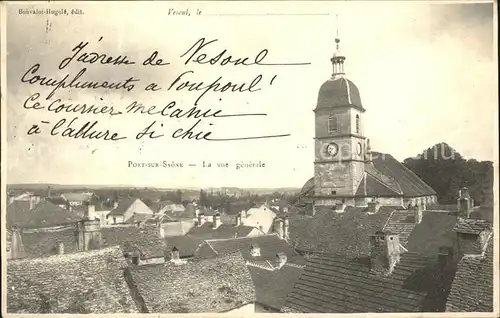 Bonvalot-Hugolé, édit.
Vesoul, le
J'adresse de Vesoul
Compliments a Poupoul!
Ce Courrier Mécanie
à l'allure si chie
PORT-SUR-SAÔNE — La vue générale